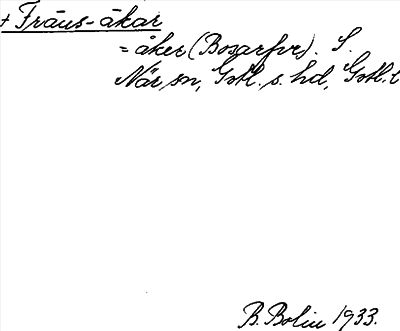 + Fräus-åkar
= åker (Bosarfve). S.
När sn, Gotl. s. hd, Gotl. l
B. Bolin 1933.